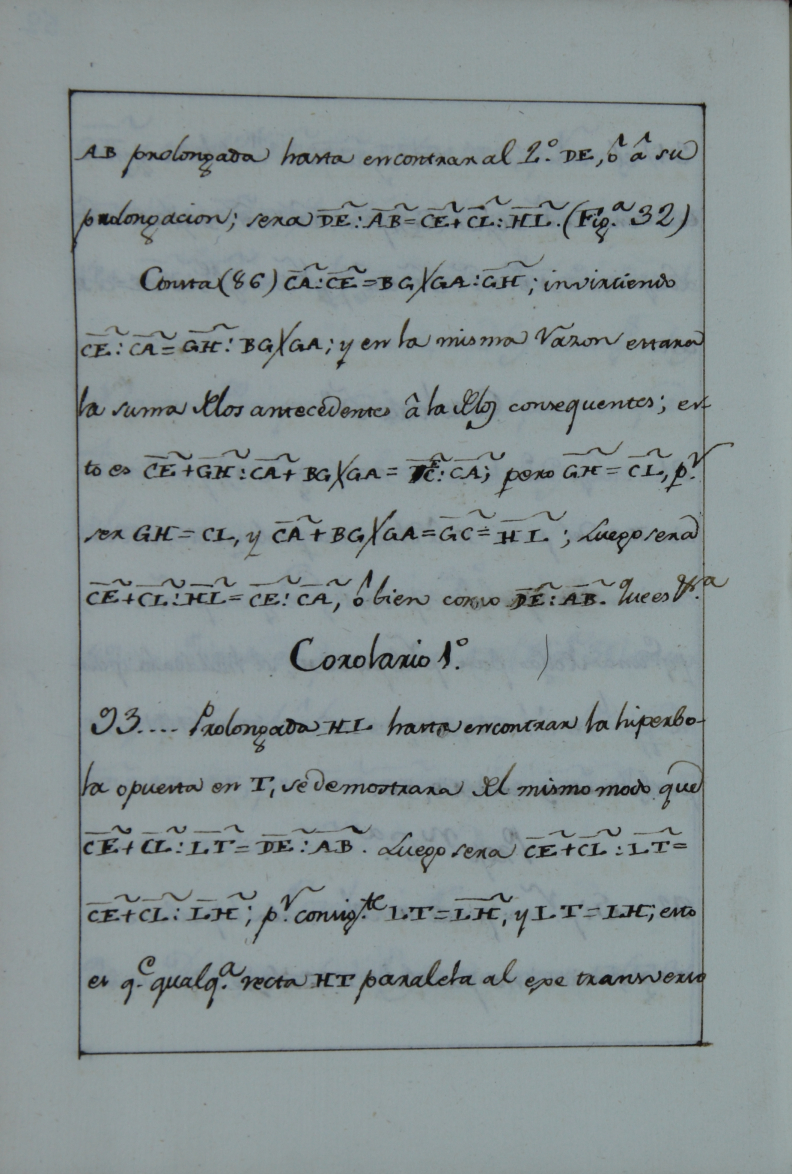 AB prolongada hasta encontrar al 2.º DE, ô â su
prolongacion; sera D̃E : ÃB = C̃E + C̃L : H̃L. (Fig.ª 32)
Consta (86) C̃A : C̃E = BG╳GA : G̃H; invirtiendo
C̃E : C̃A = G̃H : BG╳GA; y en la misma razon estara
la suma Xlos antecedentes â la Xlos consequentes; es-
to es C̃E + G̃H : C̃A + BG╳GA = C̃E : C̃A; pero G̃H = C̃L, p.r
ser GH = CL, y C̃A + BG╳GA = G̃C = H̃L; Luego sera
C̃E + C̃L : H̃L = C̃E : C̃A, ô bien como D̃E : ÃB. Que es
Corolario 1.º
93.... Prolongada HL hasta encontrar la hiperbo-
la opuesta en T, se demostrara Xl mismo modo que
C̃E + C̃L : L̃T = D̃E : ÃB. Luego sera C̃E + C̃L : L̃T =
C̃E + C̃L : L̃H; p.r consig.te L̃T = L̃H, y LT = LH; esto
es q.e qualq.a recta HT paralela al exe transverso